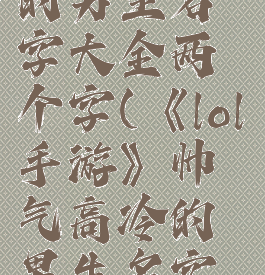 的男生名
字大全两
个字(《lol
手游》帅
气高冷的
男生名字